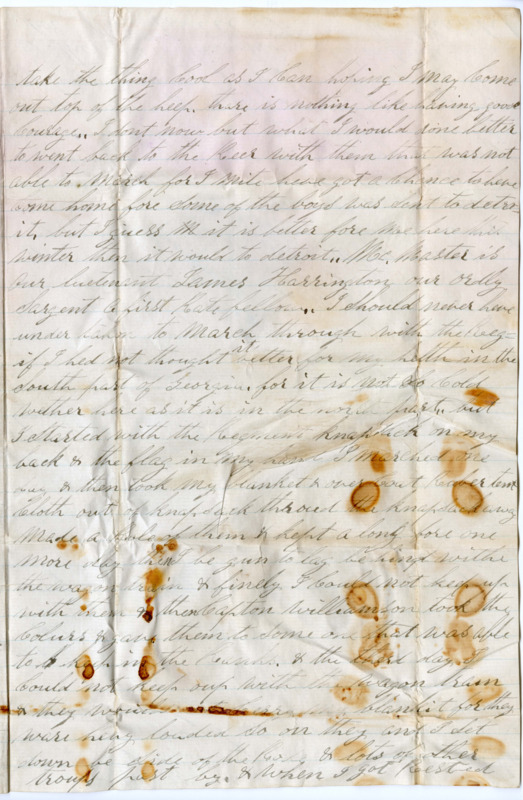 take the thing Cool as I Can hoping I may Come
out top of the heep. there is nothing like having good
Courage.. I dont now but what I would done better
to went back to the Reer with them that was not
able to March for I Mite have got a Chance to have
Come home fore some of the boys was sent to detro-
it. but I guess it is better fore me here this
winter then it would to detroit.. Mc. Master is
Our lieutenent James Harrington our Ordly
Sargent a first Rate fellow.. I should never have
under taken to March through with the Reg-
if I hed not thought it better for my helth in the
South part of Georgia. for it is not so Cold
wether here as it is in the north part.. but
I started with the Regiment knapsack on my
back & the flag in my hand I marched one
day & then took my blanket & over Coat tent
Cloth out of knapsack throwd the knapsack away
Made a of them & kept a long fore one
More day then be gun to lag behind withe
the wagon train & finely I Could not keep up
with them & the Capton Williamson took the
Colurs & gave them to some one that was able
to keep in the Ranks. & the third day I
Could not keep oup with the wagon train
& they blankit for they
ware hevy loaded so on they and I Set
down be side of the Road & lots of other
troups past by & when I got Rested